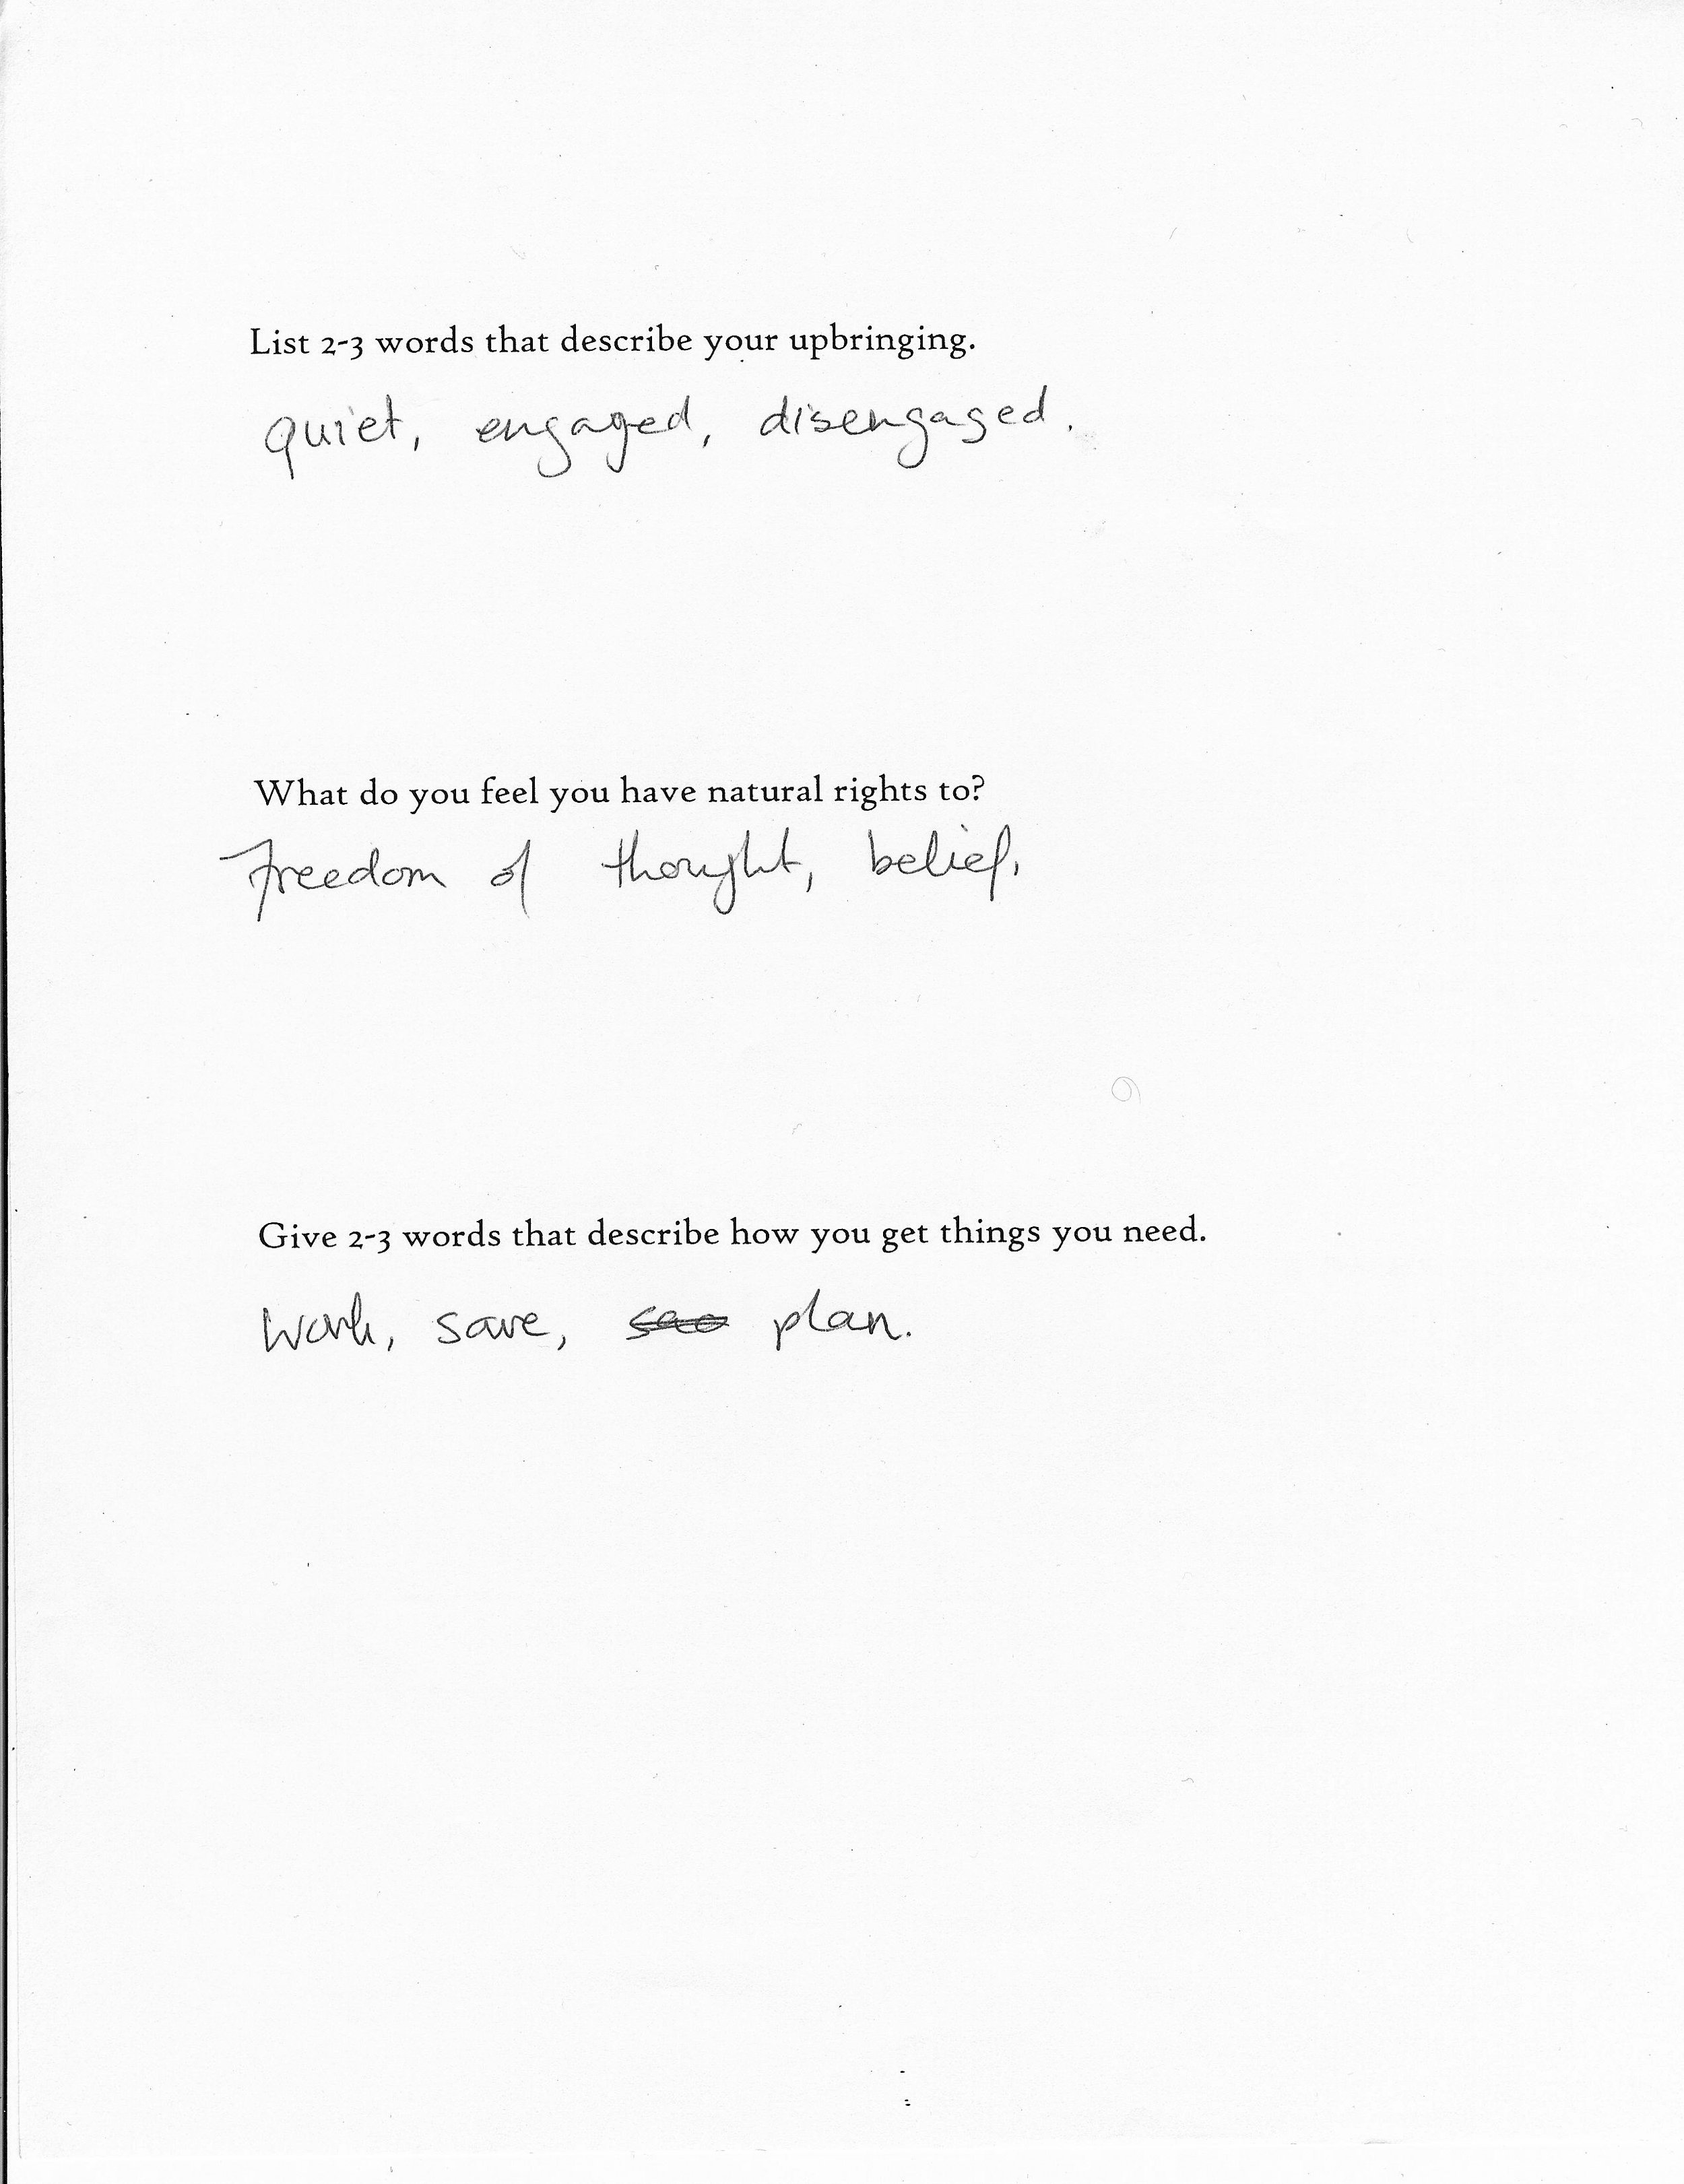 List 2-3 words that describe your upbringing.
quiet, engaged, disengaged.
What do you feel you have natural rights to?
Freedom of thought, belief.
Give 2-3 words that describe how you get things you need.
Work, save, plan.